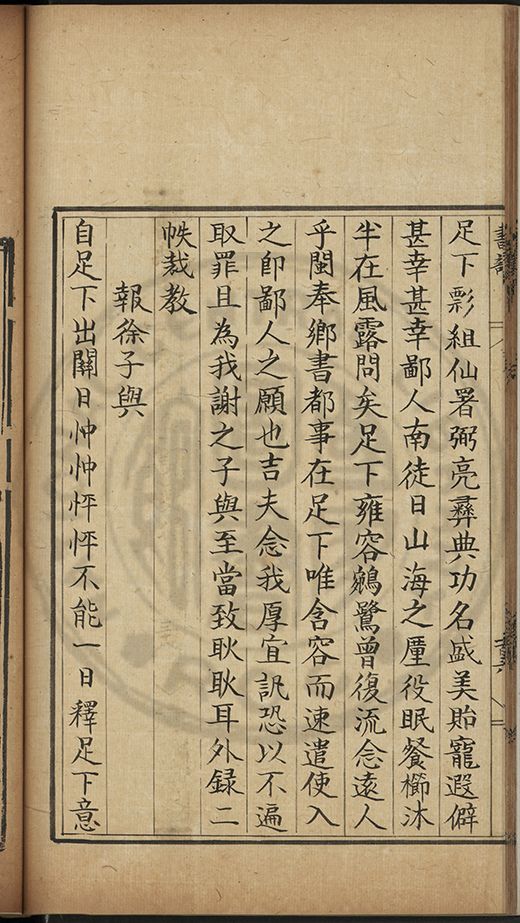 足下彯組仙署弼亮彞典功名盛美貽寵遐僻
甚幸甚幸鄙人南徒日山海之厪役眠餐櫛沐
半在風露問矣足下雍容鵷鷺曾復流念遠人
乎閩奉鄉書都事在足下唯含容而速遣使入
之卽鄙人之願也吉夫念我厚宜訊恐以不遍
取罪且為我謝之子與至當致耿耿耳外録二
帙裁教
報徐子與
自足下出關日忡忡怦怦不能一日釋足下意